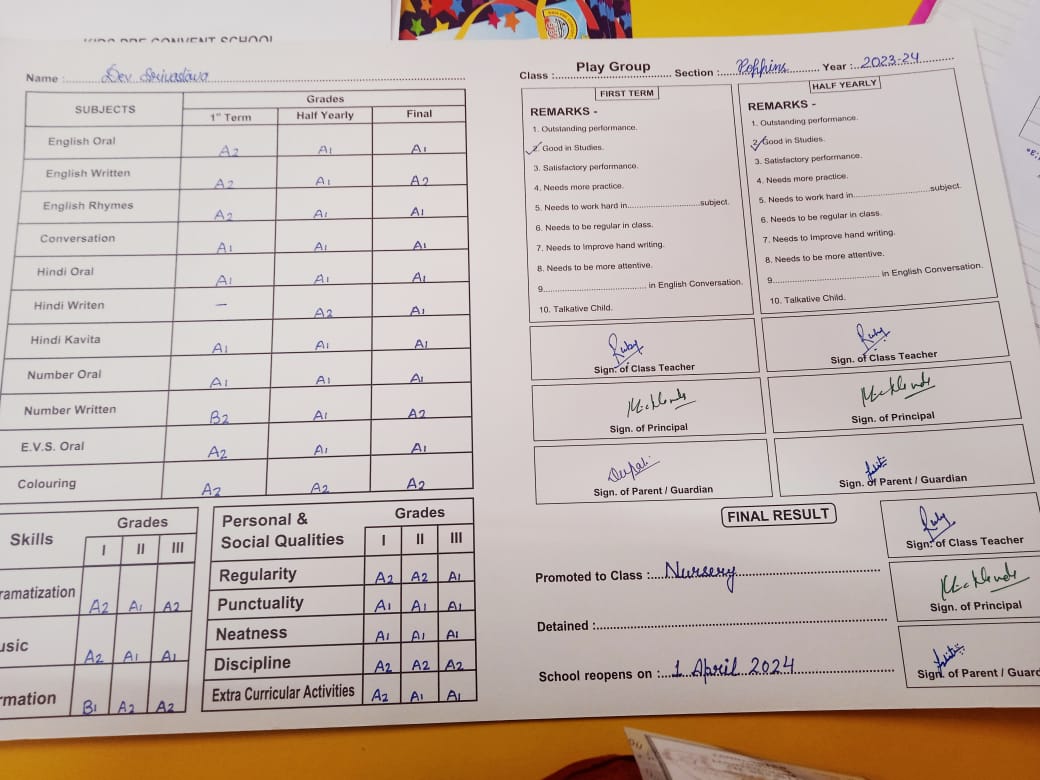 KIDS PRE CONVENT SCHOOL
Name : Dev Srivastava
SUBJECTS Grades
1st Term Half Yearly Final
English Oral A2 A1 A1
English Written A2 A1 A2
English Rhymes A2 A1 A1
Conversation A1 A1 A1
Hindi Oral A1 A1 A1
Hindi Writen — A2 A1
Hindi Kavita A1 A1 A1
Number Oral A1 A1 A1
Number Written B2 A1 A2
E.V.S. Oral A2 A1 A1
Colouring A2 A2 A2
Skills Grades
I II III
ramatization A2 A1 A2
usic A2 A1 A1
rmation B1 A2 A2
Personal & Social Qualities Grades
I II III
Regularity A2 A2 A1
Punctuality A1 A1 A1
Neatness A1 A1 A1
Discipline A2 A2 A2
Extra Curricular Activities A2 A1 A1
Class : Play Group Section : Poppins Year : 2023-24
FIRST TERM
REMARKS -
1. Outstanding performance.
2. Good in Studies.
3. Satisfactory performance.
4. Needs more practice.
5. Needs to work hard in..............................subject.
6. Needs to be regular in class.
7. Needs to Improve hand writing.
8. Needs to be more attentive.
9.......................................... in English Conversation.
10. Talkative Child.
Ruby
Sign. of Class Teacher
Sign. of Principal
Sign. of Parent / Guardian
HALF YEARLY
REMARKS -
1. Outstanding performance.
2. Good in Studies.
3. Satisfactory performance.
4. Needs more practice.
5. Needs to work hard in..............................subject.
6. Needs to be regular in class.
7. Needs to Improve hand writing.
8. Needs to be more attentive.
9.......................................... in English Conversation.
10. Talkative Child.
Ruby
Sign. of Class Teacher
Sign. of Principal
Sign. of Parent / Guardian
FINAL RESULT
Promoted to Class : Nursery
Detained :
School reopens on : 1 April 2024
Ruby
Sign. of Class Teacher
Sign. of Principal
Sign. of Parent / Guard